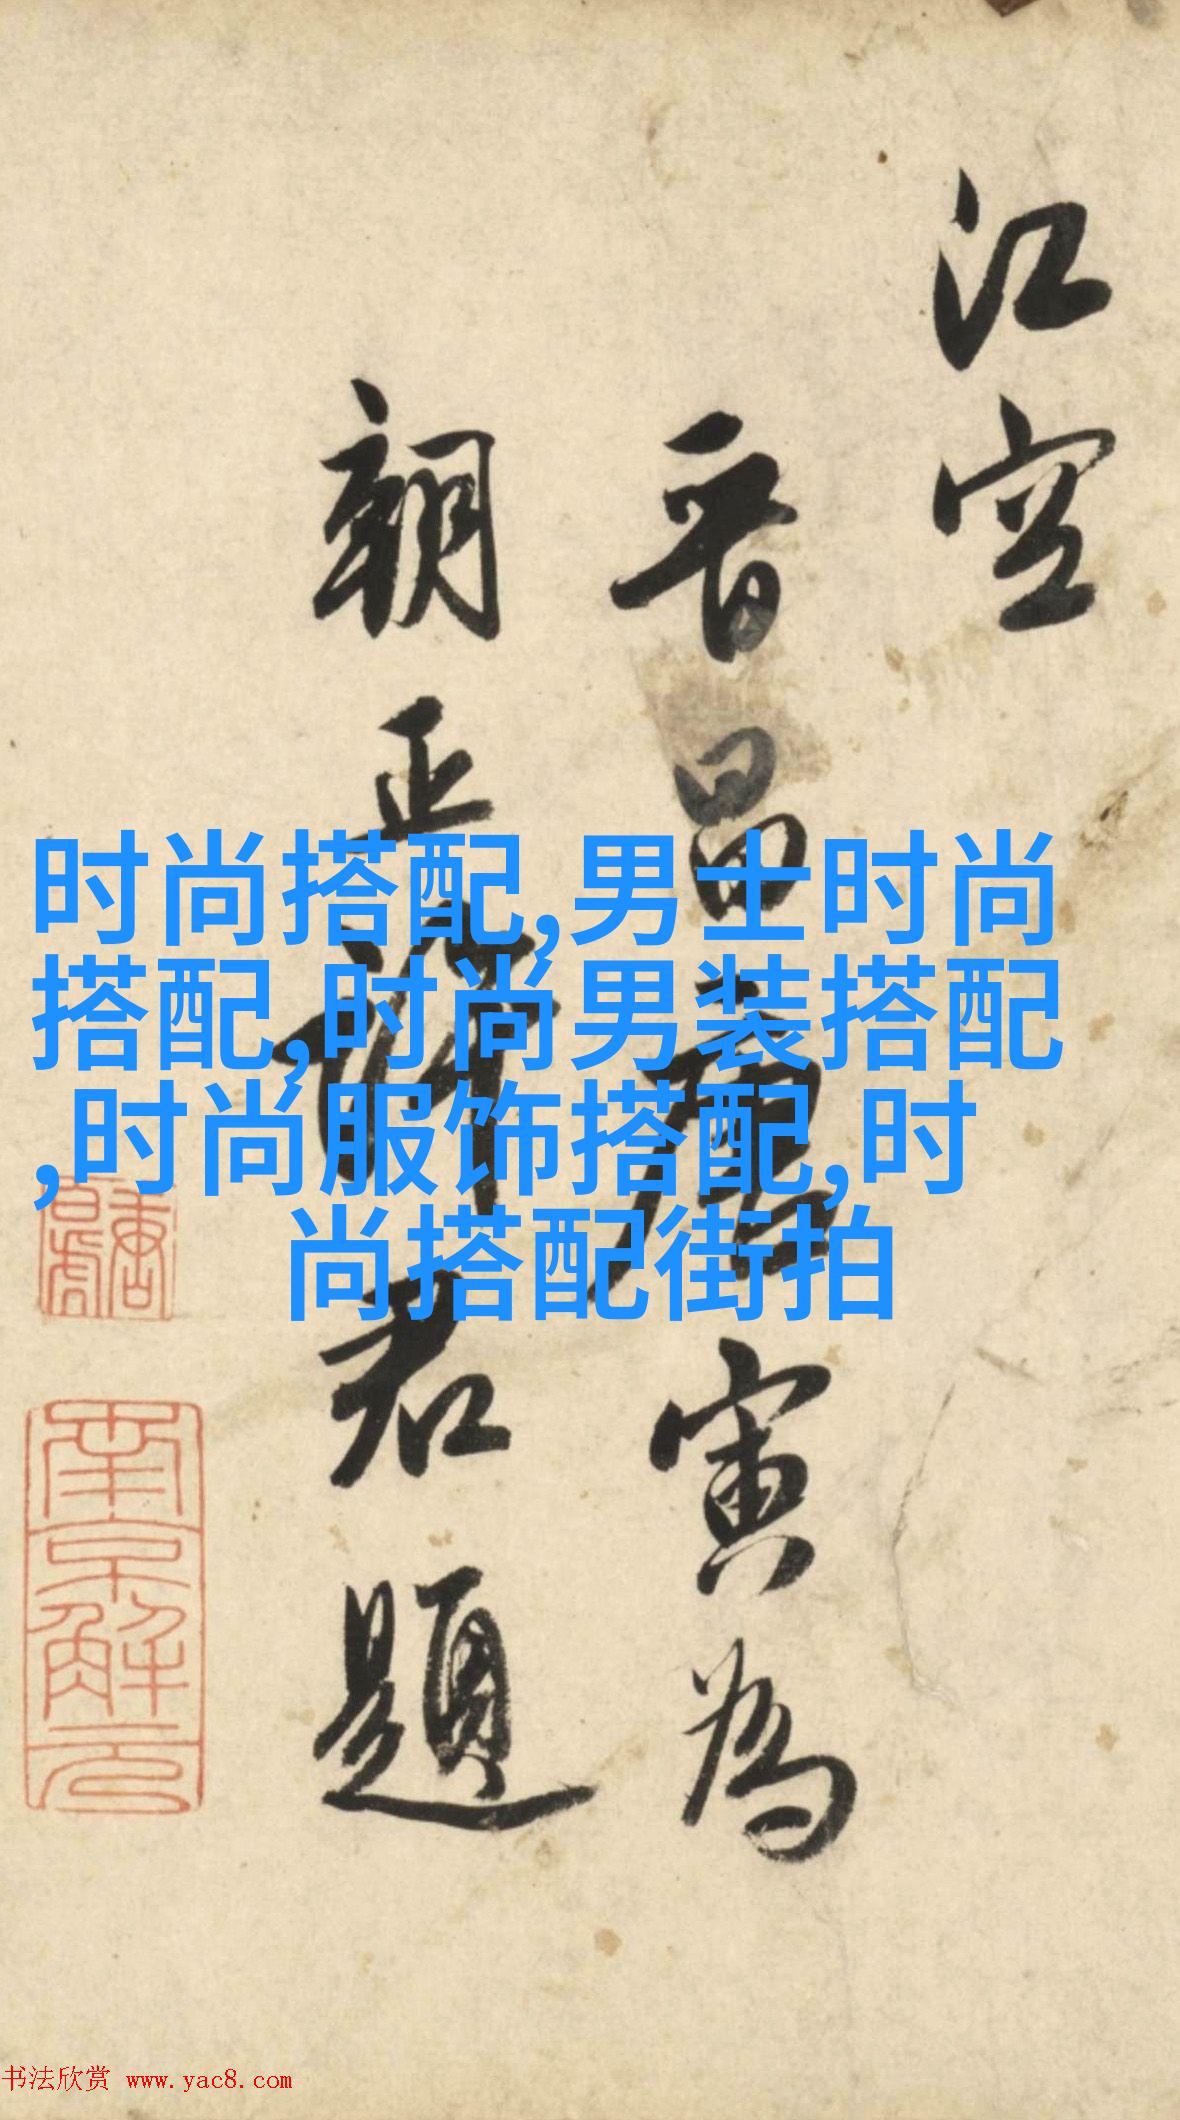 江空
晋昌唐寅為
朝正
君題
南京解元
时尚搭配,男士时尚
搭配,时尚男装搭配
,时尚服饰搭配,时
尚搭配街拍
书法欣赏 www.yac8.com